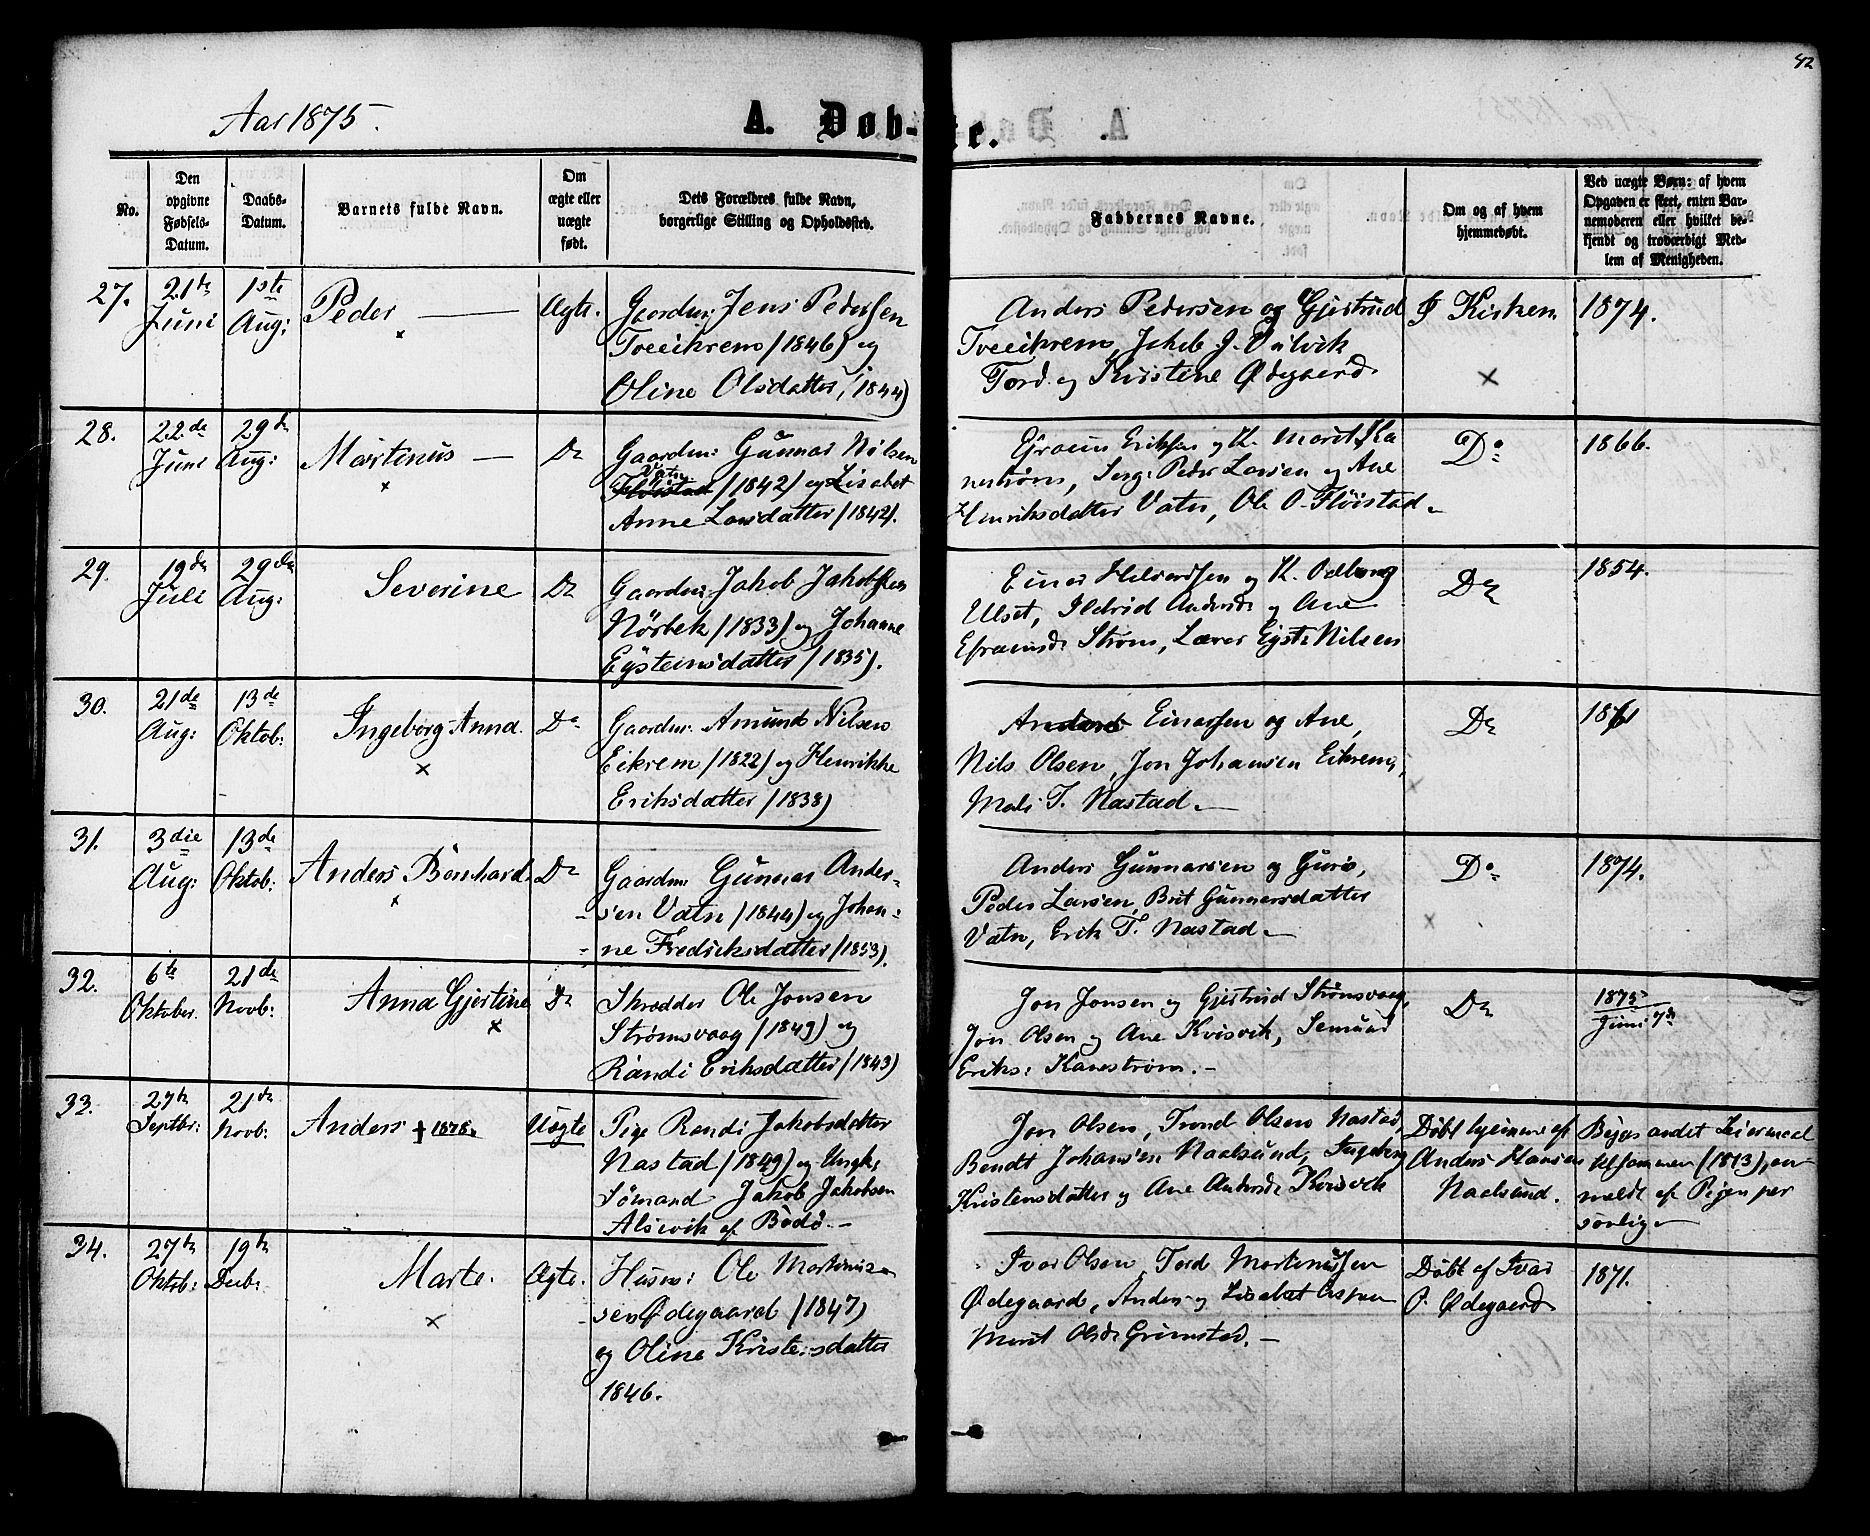 42
Aar 1875.
A. Døb-te.
No.
Den opgivne Fødsels-Datum.
Daabs-Datum.
Barnets fulde Navn.
Om ægte eller uægte født.
Dets Forældres fulde Navn, borgerlige Stilling og Opholdssted.
Faddernes Navne.
Om og af hvem hjemmedøbt.
Ved uægte Børn: af hvem Opgaven er skeet, enten Barnemoderen eller hvilket bekjendt og troværdigt Medlem af Menigheden.
27.
21de Juni
1ste Aug:
Peder
Ægte.
Gaardm: Jens Pedersen
Tveeikrem (1846) og
Oline Olsdatter, (1844)
Anders Pedersen og Gjertrud
Tveeikrem, Jakob J.
Tord og Kristine Ødegaard
I Kirken
1874.
28.
22de Juni
29de Aug:
Martinus
Do
Gaardm: Gunnar Nilsen
Vatn
Fløistad (1842) og Lisabet
Anne Larsdatter (1842).
Efraim Eriksen og K. Marit Ka
nestrøm, Serg: Peder Larsen og Ane
Henriksdatter Vatn, Ole O. Fløistad
Do
1866.
29.
19de Juli
29de Aug:
Severine
Do
Gaardm: Jakob Jakobsen
Nørbek (1833) og Johanne
Eysteinsdatter (1835).
Einar Halvorsen og K. Odlaug
Ulset, Ildrid Andersd. og Ane
Efraimsd. Strøm, Lærer Eyst: Nilsen
Do
1854.
30.
21de Aug:
13de Oktob:
Ingeborg Anna.
Do
Gaardm: Amund Nilsen
Eikrem (1822) og Henrikke
Eriksdatter (1838)
Anders Einarsen og Ane,
Nils Olsen, Jon Johansen Eikrem,
Mali T. Nastad.
Do
1861
31.
3die Aug:
13de Oktob:
Anders Bernhard.
Do
Gaardm: Gunnar Ander-
sen Vatn (1844) og Johan-
ne Fredriksdatter (1853).
Anders Gunnarsen og Guro,
Peder Larsen, Brit Gunnarsdatter
Vatn, Erik T. Nastad
Do
1874.
32.
6te Oktober.
21de Novb:
Anna Gjertine
Do
Skrædder Ole Jonsen
Strømsvaag (1849) og
Randi Eriksdatter (1843)
Jon Jonsen og Gjertrud Strømsvaag,
Jon Olsen og Ane Kvisvik, Semund
Eriks: Kanestrøm.
Do
1875
Juni 7de
33.
27de Septbr:
21de Novb:
Anders † 1878.
Uægte
Pige Randi Jakobsdatter
Nastad (1849) og Ungk:
Sømand Jakob Jakobsen
Alsvik af Bodø.
Jon Olsen, Trond Olsen Nastad,
Bendt Johansen Naalsund, Ingeborg
Kristensdatter og Ane Andersd. Kvisvik
Døbt hjemme af
Anders Hansen
Naalsund.
Begges andet Leiermaal
tilsammen (1873), an-
meldt af Pigen per
sonlig
34.
27de Oktob:
19de Decb:
Marte.
Ægte.
Husm: Ole Martinus-
sen Ødegaard (1847)
og Oline Kristensdatter
1846.
Ivar Olsen, Tord Martinussen
Ødegaard, Anders og Lisabet Aspen
Marit Olsd. Grimstad.
Døbt af Ivar
O. Ødegaard
1871.